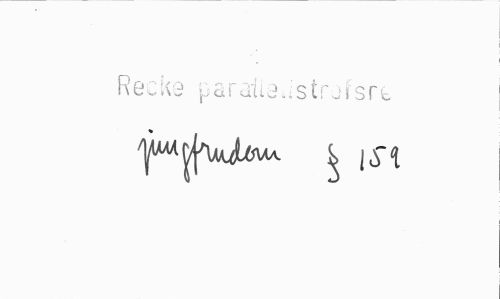 Recke parallellstrofsre
jungfrudom § 159